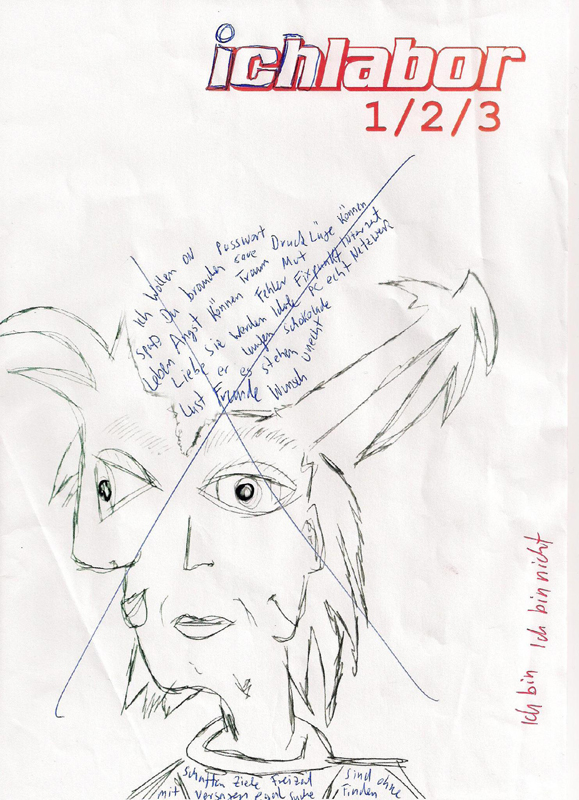 ichlabor
1/2/3
ich Wollen ON Passwort
Spaß Du brauchen save Druck Lüge Können
Leben Angst Können Traum Mut
Liebe Sie Werden Fehler Fixpunkt
Lust er Ideale PC echt Netzwerk
Freunde es laufen Schokolade
Wunsch stehen unecht
Ich bin Ich bin nicht
schaffen Ziele Freizeit sind ohne
mit versagen Suche finden